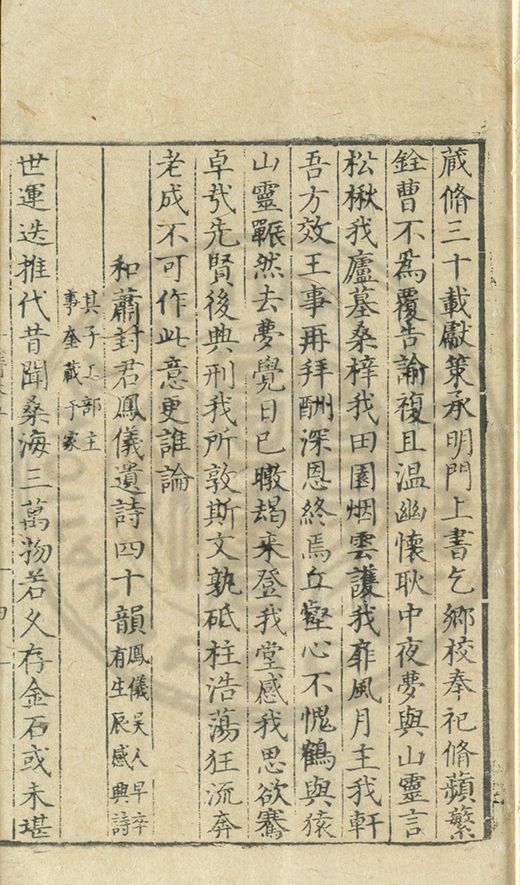 藏脩三十載獻策承明門上書乞鄉校奉祀脩蘋蘩
銓曹不爲覆告諭複且温幽懷耿中夜夢與山靈言
松楸我廬墓桑梓我田園烟雲護我扉風月主我軒
吾方效王事再拜酬深恩終焉丘壑心不愧鶴與猿
山靈囅然去夢覺日已暾朅來登我堂感我思欲騫
卓㢤先賢後典刑我所敦斯文孰砥柱浩蕩狂流奔
老成不可作此意更誰論
和蕭封君鳳儀遺詩四十韻鳳儀吴人早卒有生辰感興詩
其子工部主事奎藏于家
世運迭推代昔聞桑海三萬物若久存金石或未堪